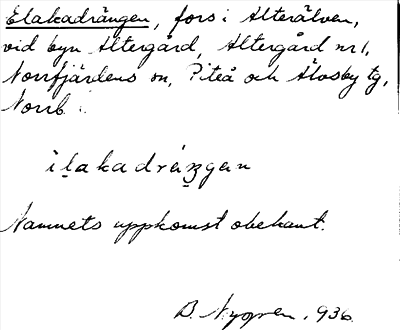 Elakadrängen, fors i Alterälven,
vid byn Altergård, Altergård nr 1,
Norrfjärdens sn, Piteå och Älvsby tg,
Norrb.
ilakadräŋgen
Namnets uppkomst obekant.
B. Nygren, 1936.